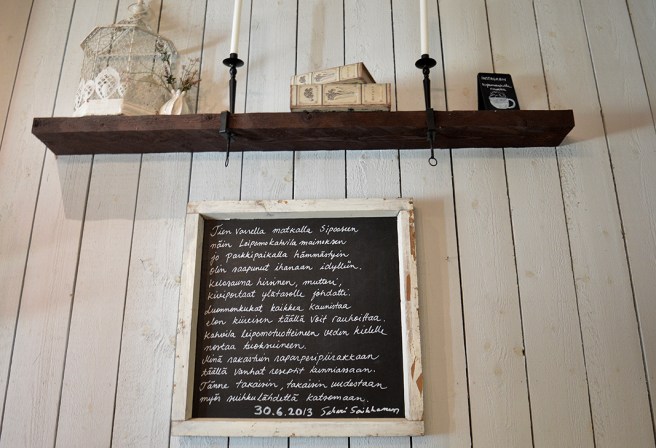 Tien varrella matkalla Sipooseen
näin Leipomokahvila maineksen
jo parkkipaikalla hämmästyin
olin saapunut ihanaan idylliin.
Kelosauna hirsinen, mutteri,
kiviportaat ylätasolle johdatti.
Luonnonkukat kaikkea kaunistaa
elon kiireisen täällä voit rauhoittaa.
Kahvila Leipomotuotteineen veden kielelle
nostaa tuoksuineen.
Minä rakastuin raparperipiirakkaan
täällä vanhat reseptit kunniassaan.
Tänne takaisin, takaisin uudestaan
myös suihkulähdettä katsomaan.
30.6.2013